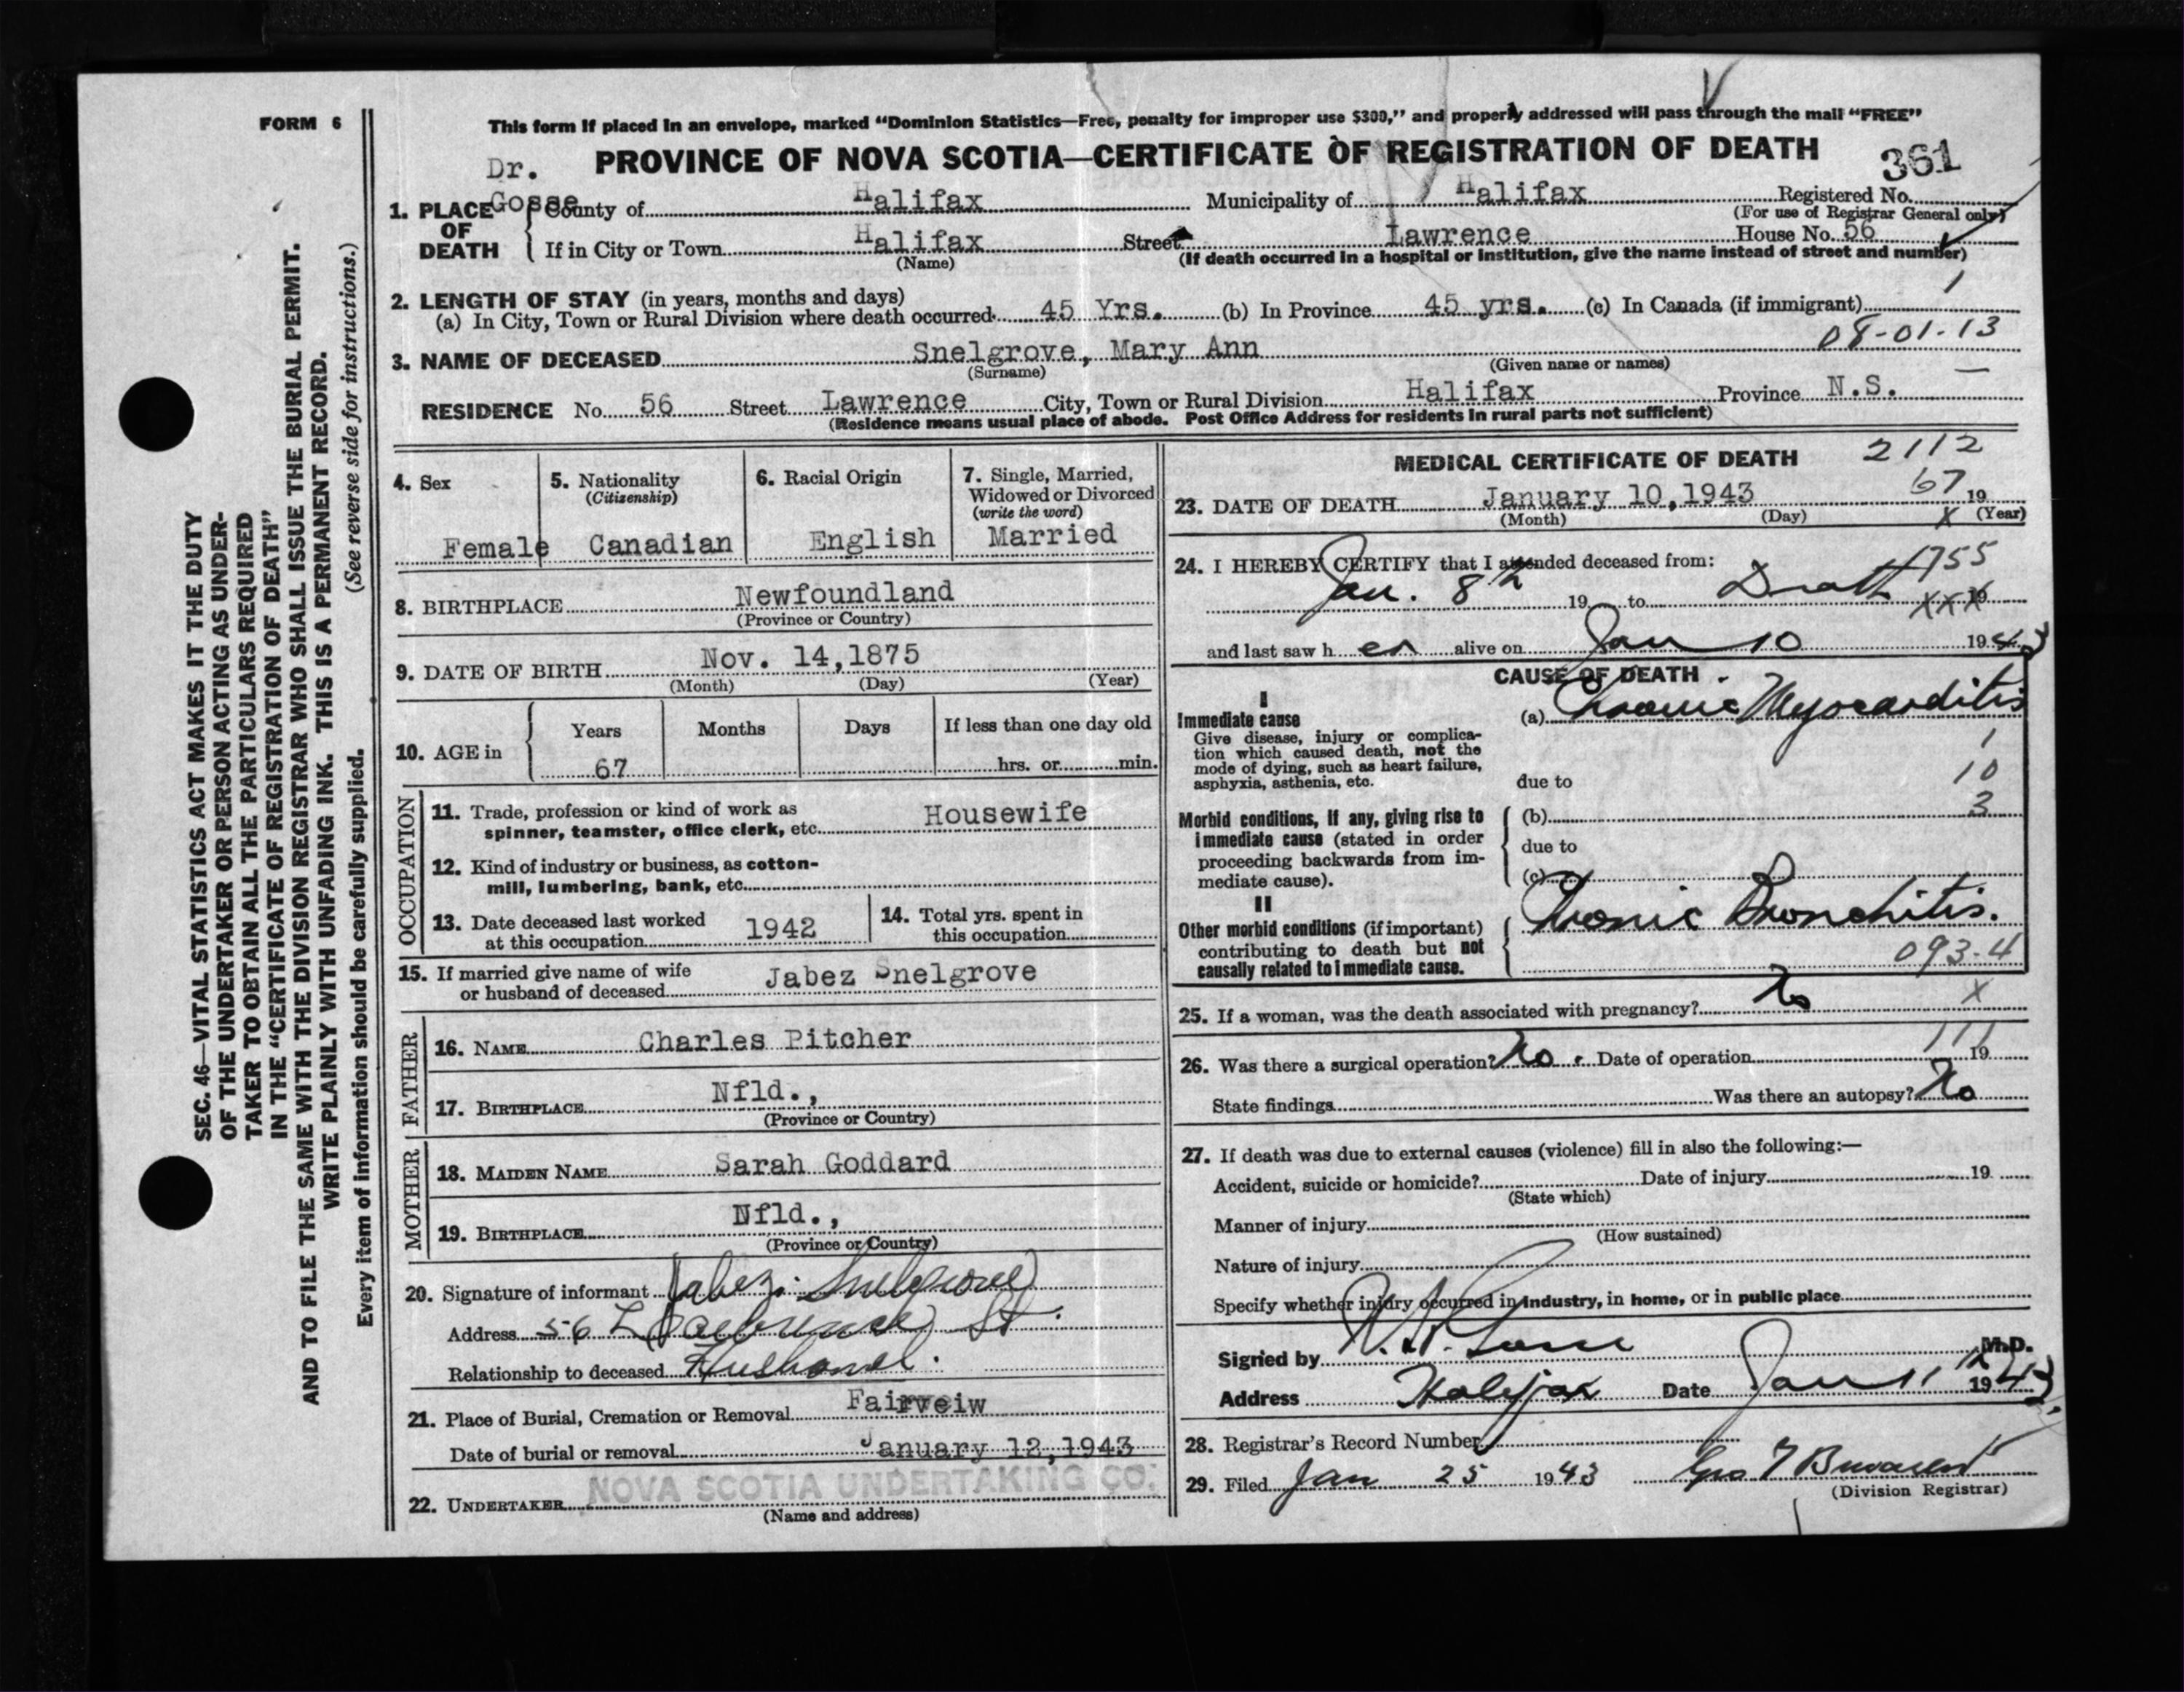 FORM 6
This form if placed in an envelope, marked “Dominion Statistics—Free, penalty for improper use $300,” and properly addressed will pass through the mail “FREE”
Dr.
Gosse
PROVINCE OF NOVA SCOTIA—CERTIFICATE OF REGISTRATION OF DEATH
361
1. PLACE OF DEATH
County of Halifax Municipality of Halifax Registered No.
(For use of Registrar General only)
If in City or Town Halifax Street Lawrence House No. 56
(Name) (If death occurred in a hospital or institution, give the name instead of street and number)
2. LENGTH OF STAY (in years, months and days)
(a) In City, Town or Rural Division where death occurred 45 Yrs. (b) In Province 45 yrs. (c) In Canada (if immigrant) 1
08-01-13
3. NAME OF DECEASED Snelgrove, Mary Ann
(Surname) (Given name or names)
RESIDENCE No. 56 Street Lawrence City, Town or Rural Division Halifax Province N.S.
(Residence means usual place of abode. Post Office Address for residents in rural parts not sufficient)
4. Sex
Female
5. Nationality
(Citizenship)
Canadian
6. Racial Origin
English
7. Single, Married,
Widowed or Divorced
(write the word)
Married
8. BIRTHPLACE Newfoundland
(Province or Country)
9. DATE OF BIRTH Nov. 14,1875
(Month) (Day) (Year)
10. AGE in
Years Months Days If less than one day old
67 hrs. or min.
OCCUPATION
11. Trade, profession or kind of work as
spinner, teamster, office clerk, etc. Housewife
12. Kind of industry or business, as cotton-
mill, lumbering, bank, etc.
13. Date deceased last worked
at this occupation 1942
14. Total yrs. spent in
this occupation
15. If married give name of wife
or husband of deceased Jabez Snelgrove
FATHER
16. NAME Charles Pitcher
17. BIRTHPLACE Nfld.,
(Province or Country)
MOTHER
18. MAIDEN NAME Sarah Goddard
19. BIRTHPLACE Nfld.,
(Province or Country)
20. Signature of informant Jabez Snelgrove
Address 56 Lawrence St.
Relationship to deceased Husband.
21. Place of Burial, Cremation or Removal Fairveiw
Date of burial or removal January 12,1943
22. UNDERTAKER NOVA SCOTIA UNDERTAKING CO.
(Name and address)
MEDICAL CERTIFICATE OF DEATH
2112
67
23. DATE OF DEATH January 10,1943 19
(Month) (Day) X (Year)
24. I HEREBY CERTIFY that I attended deceased from:
1755
Jan. 8th 19 to Death 19
XXX
and last saw her alive on Jan 10 1943
CAUSE OF DEATH
I
Immediate cause
Give disease, injury or complica-
tion which caused death, not the
mode of dying, such as heart failure,
asphyxia, asthenia, etc.
(a) Chronic Myocarditis
1
due to 10
Morbid conditions, if any, giving rise to
immediate cause (stated in order
proceeding backwards from im-
mediate cause).
(b) 3
due to
(c)
II
Other morbid conditions (if important)
contributing to death but not
causally related to immediate cause.
Chronic Bronchitis.
093-4
25. If a woman, was the death associated with pregnancy? No X
111
26. Was there a surgical operation? No. Date of operation 19
State findings Was there an autopsy? No
27. If death was due to external causes (violence) fill in also the following:—
Accident, suicide or homicide? Date of injury 19
(State which)
Manner of injury
(How sustained)
Nature of injury
Specify whether injury occurred in industry, in home, or in public place
Signed by Gosse M.D.
Address Halifax Date Jan 11th 1943
28. Registrar's Record Number
29. Filed Jan 25 1943
(Division Registrar)
SEC. 46—VITAL STATISTICS ACT MAKES IT THE DUTY
OF THE UNDERTAKER OR PERSON ACTING AS UNDER-
TAKER TO OBTAIN ALL THE PARTICULARS REQUIRED
IN THE “CERTIFICATE OF REGISTRATION OF DEATH”
AND TO FILE THE SAME WITH THE DIVISION REGISTRAR WHO SHALL ISSUE THE BURIAL PERMIT.
WRITE PLAINLY WITH UNFADING INK. THIS IS A PERMANENT RECORD.
(See reverse side for instructions.)
Every item of information should be carefully supplied.